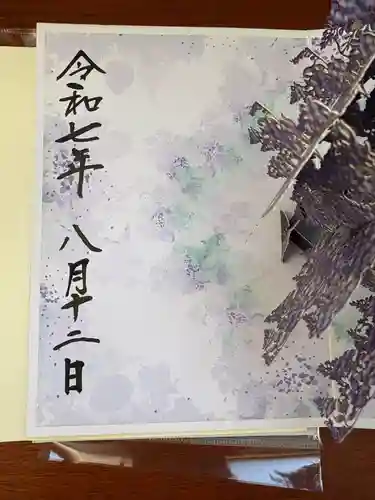 令和七年 八月十二日